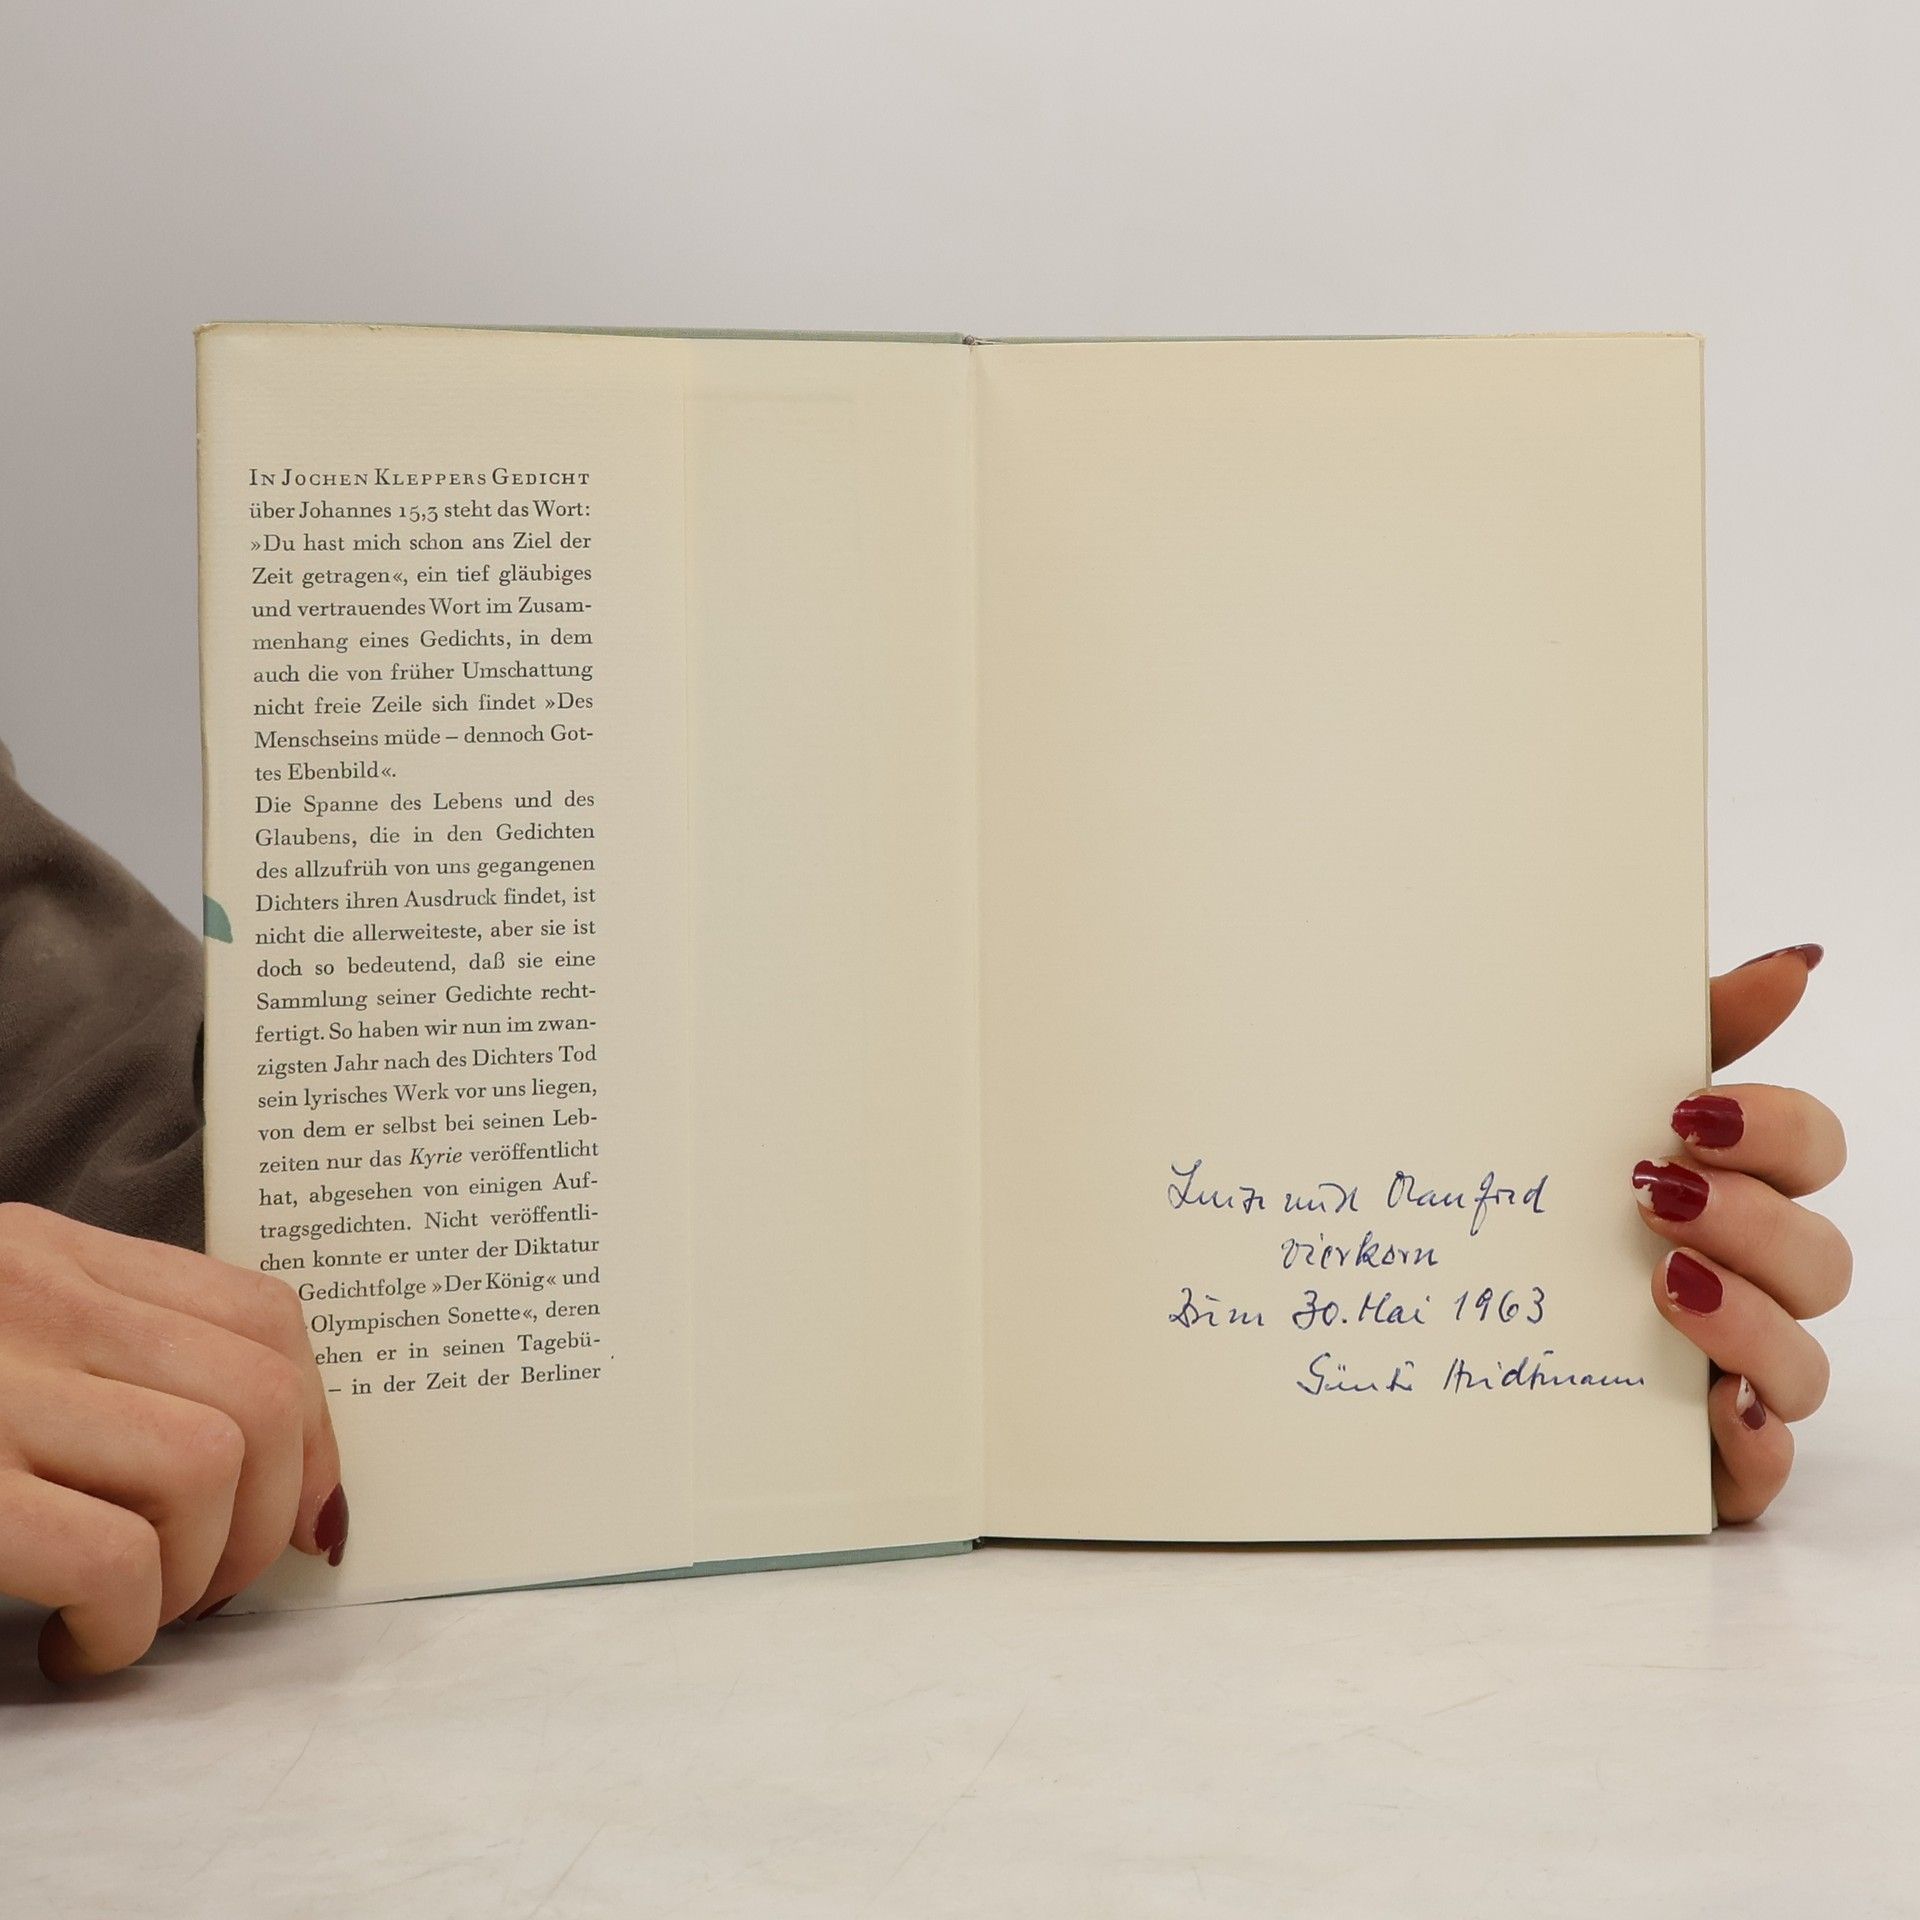 IN JOCHEN KLEPPERS GEDICHT
über Johannes 15,3 steht das Wort:
»Du hast mich schon ans Ziel der
Zeit getragen«, ein tief gläubiges
und vertrauendes Wort im Zusam-
menhang eines Gedichts, in dem
auch die von früher Umschattung
nicht freie Zeile sich findet »Des
Menschseins müde – dennoch Got-
tes Ebenbild«.
Die Spanne des Lebens und des
Glaubens, die in den Gedichten
des allzufrüh von uns gegangenen
Dichters ihren Ausdruck findet, ist
nicht die allerweiteste, aber sie ist
doch so bedeutend, daß sie eine
Sammlung seiner Gedichte recht-
fertigt. So haben wir nun im zwan-
zigsten Jahr nach des Dichters Tod
sein lyrisches Werk vor uns liegen,
von dem er selbst bei seinen Leb-
zeiten nur das Kyrie veröffentlicht
hat, abgesehen von einigen Auf-
tragsgedichten. Nicht veröffentli-
chen konnte er unter der Diktatur
Gedichtfolge »Der König« und
Olympischen Sonette«, deren
ehen er in seinen Tagebü-
– in der Zeit der Berliner
und Manfred
Vierkorn
zum 30. Mai 1963